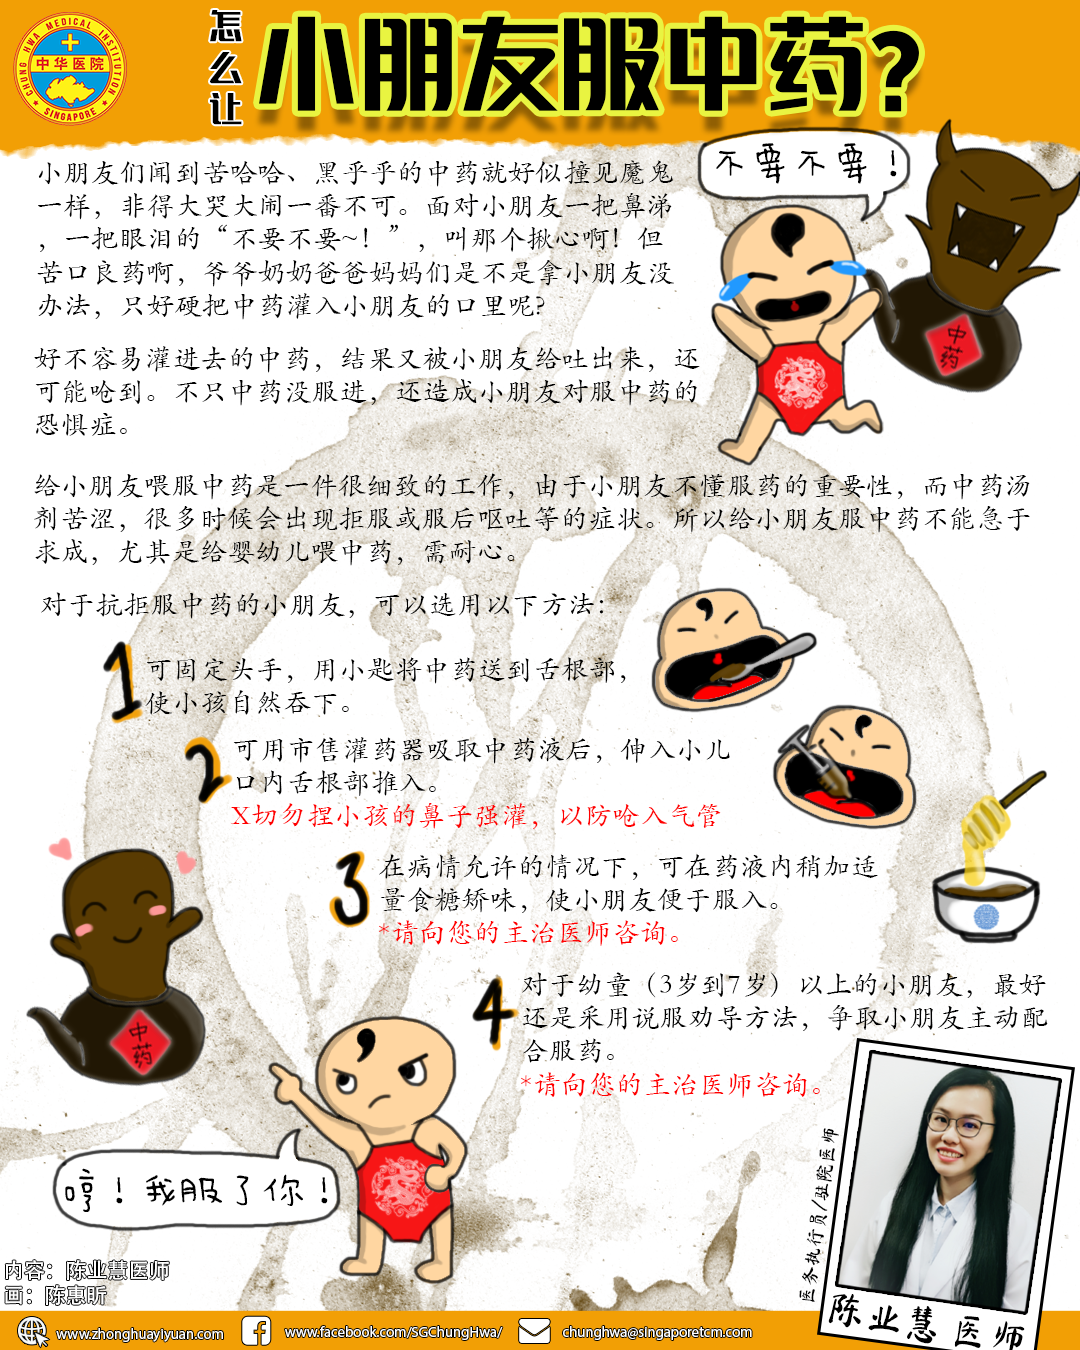 CHUNG HWA MEDICAL INSTITUTION
中华医院
SINGAPORE
怎么让
小朋友服中药?
小朋友们闻到苦哈哈、黑乎乎的中药就好似撞见魔鬼
一样，非得大哭大闹一番不可。面对小朋友一把鼻涕
，一把眼泪的“不要不要~！”，叫那个揪心啊！但
苦口良药啊，爷爷奶奶爸爸妈妈们是不是拿小朋友没
办法，只好硬把中药灌入小朋友的口里呢?
不要不要！
中药
好不容易灌进去的中药，结果又被小朋友给吐出来，还
可能呛到。不只中药没服进，还造成小朋友对服中药的
恐惧症。
给小朋友喂服中药是一件很细致的工作，由于小朋友不懂服药的重要性，而中药汤
剂苦涩，很多时候会出现拒服或服后呕吐等的症状。所以给小朋友服中药不能急于
求成，尤其是给婴幼儿喂中药，需耐心。
对于抗拒服中药的小朋友，可以选用以下方法：
1
可固定头手，用小匙将中药送到舌根部，
使小孩自然吞下。
2
可用市售灌药器吸取中药液后，伸入小儿
口内舌根部推入。
X切勿捏小孩的鼻子强灌，以防呛入气管
3
在病情允许的情况下，可在药液内稍加适
量食糖矫味，使小朋友便于服入。
*请向您的主治医师咨询。
4
对于幼童（3岁到7岁）以上的小朋友，最好
还是采用说服劝导方法，争取小朋友主动配
合服药。
*请向您的主治医师咨询。
中药
哼！我服了你！
医务执行员/驻院医师
陈业慧医师
内容：陈业慧医师
画：陈惠昕
www.zhonghuayiyuan.com
www.facebook.com/SGChungHwa/
chunghwa@singaporetcm.com